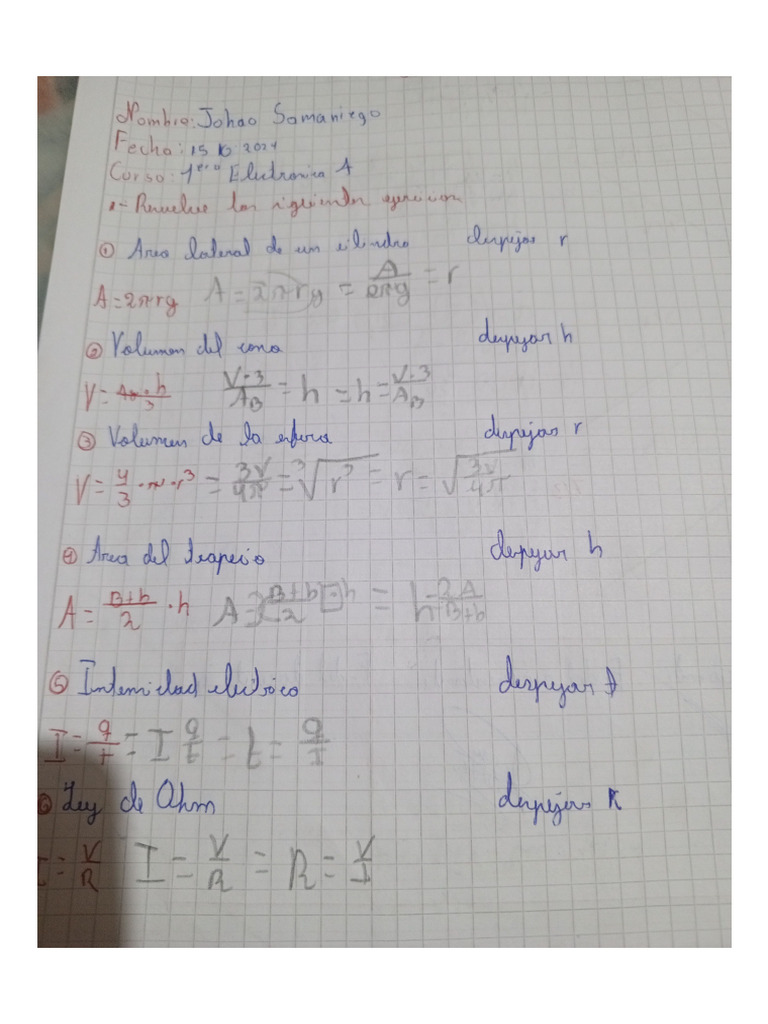 Nombre: Johao Samaniego
Fecha: 15 10 2024
Curso: 1ero Electronica A
1- Resuelve los siguientes ejercicios
① Area lateral de un cilindro despejar r
A=2πrg A=2πrg = A/2πg = r
② Volumen del cono despejar h
V= AB·h/3 V·3/AB = h = h = V·3/AB
③ Volumen de la esfera despejar r
V= 4/3 ·π·r³ = 3V/4π = ³√r³ = r = √3V/4π
④ Area del trapecio despejar h
A= B+b/2 ·h A= B+b/2 · h = h = 2A/B+b
⑤ Intensidad electrica despejar t
I= q/t = I q/t = t = q/I
⑥ Ley de Ohm despejar R
I= V/R I = V/R = R = V/I